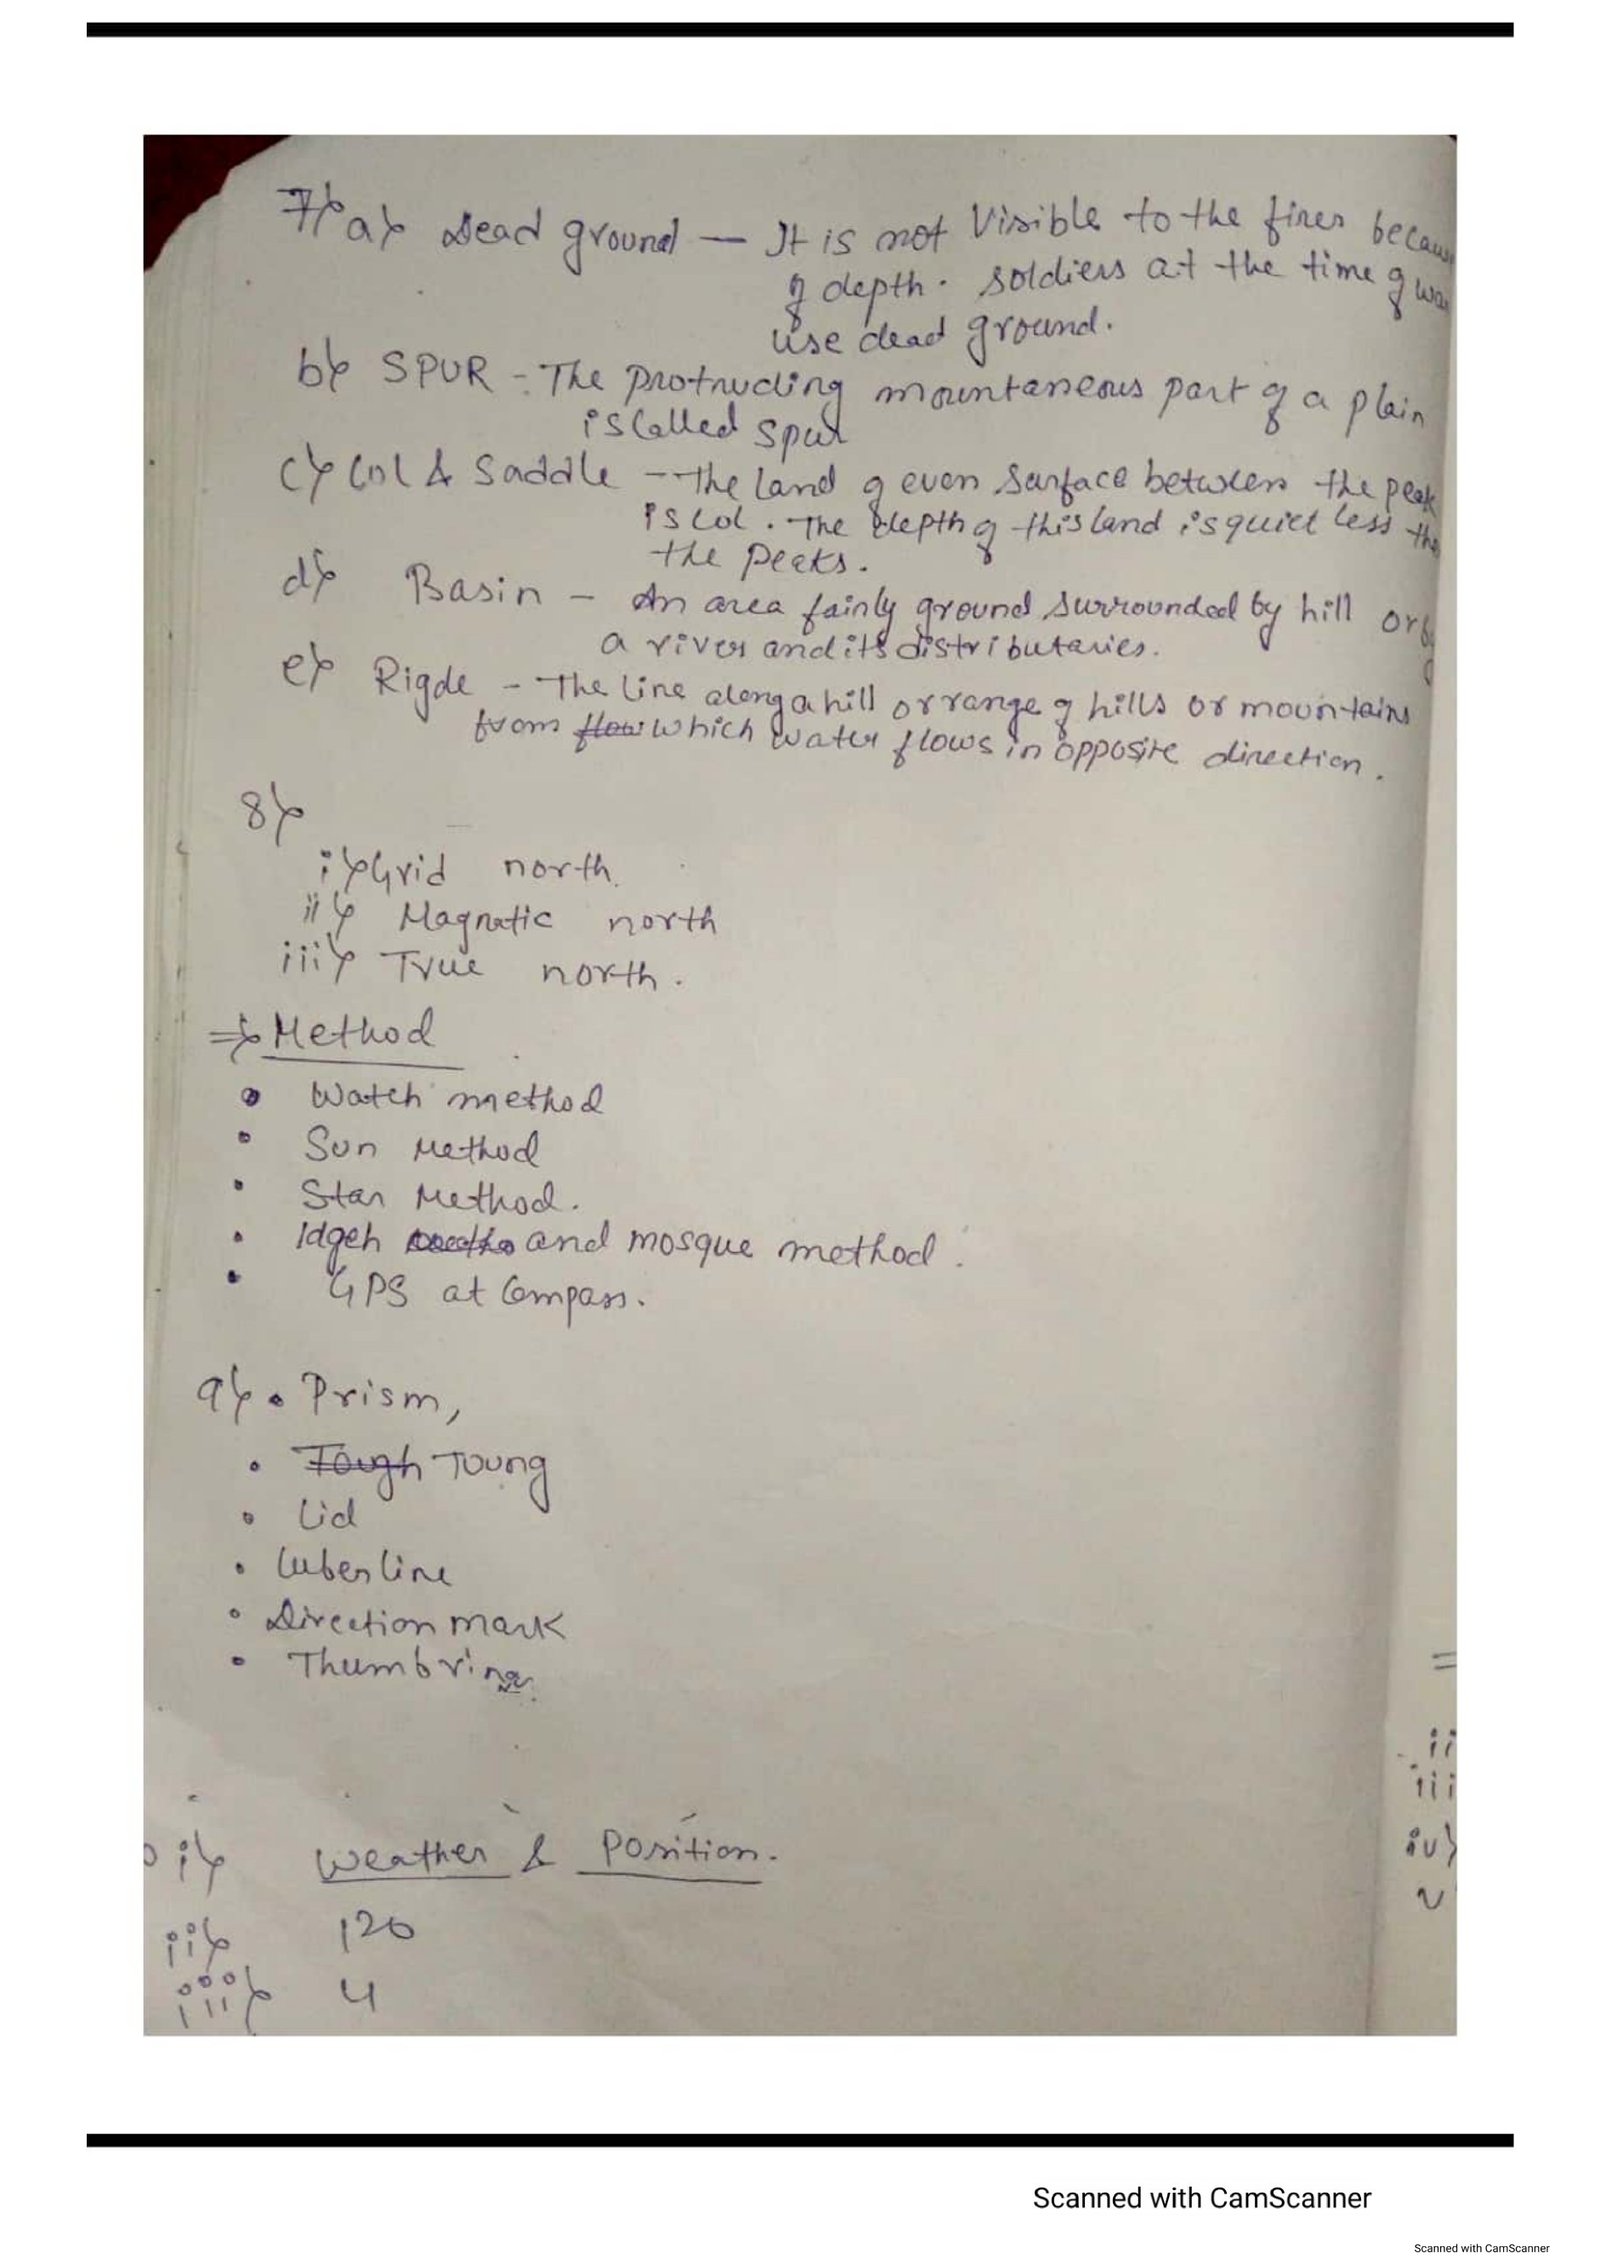 7) a) Dead ground — It is not Visible to the firer becaus
of depth. soldiers at the time of wa
use dead ground.
b) SPUR - The protruding mountaneous part of a plain
is Called spur
c) Col & Saddle - The land of even surface between the peak
is Col. The depth of this land is quiet less tha
the peaks.
d) Basin - An area fairly ground surrounded by hill or by
a river and its distributaries.
e) Rigde - The line along a hill or range of hills or mountains
from flow which water flows in opposite direction.
8)
i) Grid north.
ii) Magnatic north
iii) True north.
⇒ Method
• Watch method
• Sun Method
• Star Method.
• Idgeh and mosque method.
• GPS at Compass.
9) • Prism,
• Tough Toung
• Lid
• Luber line
• Direction mark
• Thumb ring
i) Weather & Position.
ii) 120
iii) 4
=
ii
iii
iv)
v
Scanned with CamScanner
Scanned with CamScanner